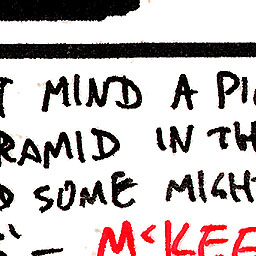 T MIND A PI
RAMID IN TH
D SOME MIGHT
— McKEE